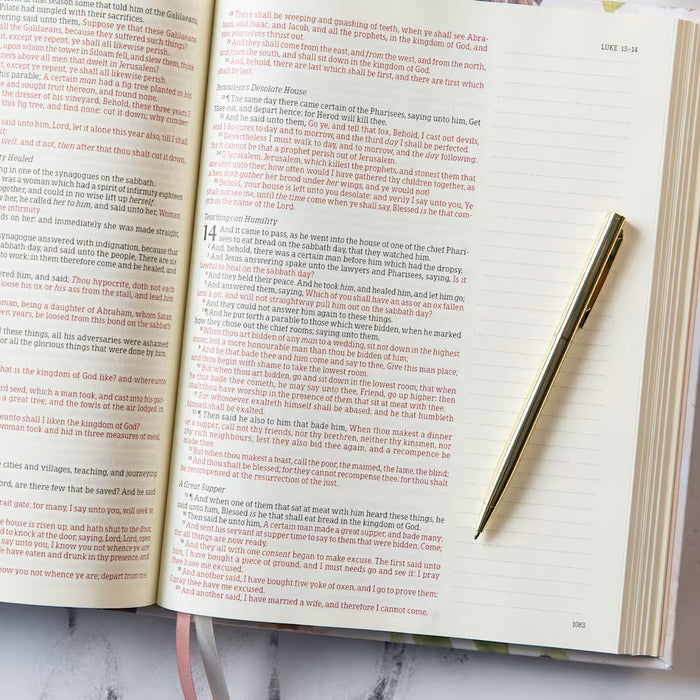 as some that told him of the Galilaeans,
Pilate had mingled with their sacrifices.
vering said unto them, Suppose ye that these Galilaeans
all the Galilaeans, because they suffered such things?
, except ye repent, ye shall all likewise perish.
, upon whom the tower in Siloam fell, and slew them, think
nners above all men that dwelt in Jerusalem?
t, except ye repent, ye shall all likewise perish.
his parable; A certain man had a fig tree planted in his
e and sought fruit thereon, and found none.
the dresser of his vineyard, Behold, these three years I
this fig tree, and find none: cut it down; why cumber-
said unto him, Lord, let it alone this year also, till I shall
it:
well: and if not, then after that thou shalt cut it down.
ry Healed
ing in one of the synagogues on the sabbath.
was a woman which had a spirit of infirmity eighteen
ogether, and could in no wise lift up herself.
w her, he called her to him, and said unto her, Woman,
ne infirmity.
nds on her: and immediately she was made straight,
synagogue answered with indignation, because that
sabbath day, and said unto the people, There are six
to work: in them therefore come and be healed, and
ered him, and said, Thou hypocrite, doth not each
loose his ox or his ass from the stall, and lead him
oman, being a daughter of Abraham, whom Satan
een years, be loosed from this bond on the sabbath
these things, all his adversaries were ashamed:
or all the glorious things that were done by him.
hat is the kingdom of God like? and whereunto
rd seed, which a man took, and cast into his gar-
a great tree; and the fowls of the air lodged in
eunto shall I liken the kingdom of God?
woman took and hid in three measures of meal,
cities and villages, teaching, and journeying
ord, are there few that be saved? And he said
rait gate: for many, I say unto you, will seek to
house is risen up, and hath shut to the door,
d to knock at the door, saying, Lord, Lord, open
say unto you, I know you not whence ye are:
e have eaten and drunk in thy presence, and
now you not whence ye are; depart from
LUKE 13–14
28 There shall be weeping and gnashing of teeth, when ye shall see Abra-
ham, and Isaac, and Jacob, and all the prophets, in the kingdom of God, and
you yourselves thrust out.
29 And they shall come from the east, and from the west, and from the north,
and from the south, and shall sit down in the kingdom of God.
30 And, behold, there are last which shall be first, and there are first which
shall be last.
Jerusalem's Desolate House
31 ¶ The same day there came certain of the Pharisees, saying unto him, Get
thee out, and depart hence: for Herod will kill thee.
32 And he said unto them, Go ye, and tell that fox, Behold, I cast out devils,
and I do cures to day and to morrow, and the third day I shall be perfected.
33 Nevertheless I must walk to day, and to morrow, and the day following:
for it cannot be that a prophet perish out of Jerusalem.
34 O Jerusalem, Jerusalem, which killest the prophets, and stonest them that
are sent unto thee; how often would I have gathered thy children together, as
a hen doth gather her brood under her wings, and ye would not!
35 Behold, your house is left unto you desolate: and verily I say unto you, Ye
shall not see me, until the time come when ye shall say, Blessed is he that com-
eth in the name of the Lord.
Teachings on Humility
14 And it came to pass, as he went into the house of one of the chief Phari-
sees to eat bread on the sabbath day, that they watched him.
2 And, behold, there was a certain man before him which had the dropsy.
3 And Jesus answering spake unto the lawyers and Pharisees, saying, Is it
lawful to heal on the sabbath day?
4 And they held their peace. And he took him, and healed him, and let him go;
5 And answered them, saying, Which of you shall have an ass or an ox fallen
into a pit, and will not straightway pull him out on the sabbath day?
6 And they could not answer him again to these things.
7 ¶ And he put forth a parable to those which were bidden, when he marked
how they chose out the chief rooms; saying unto them,
8 When thou art bidden of any man to a wedding, sit not down in the highest
room; lest a more honourable man than thou be bidden of him;
9 And he that bade thee and him come and say to thee, Give this man place;
and thou begin with shame to take the lowest room.
10 But when thou art bidden, go and sit down in the lowest room; that when
he that bade thee cometh, he may say unto thee, Friend, go up higher: then
shalt thou have worship in the presence of them that sit at meat with thee.
11 For whosoever exalteth himself shall be abased; and he that humbleth
himself shall be exalted.
12 ¶ Then said he also to him that bade him, When thou makest a dinner
or a supper, call not thy friends, nor thy brethren, neither thy kinsmen, nor
thy rich neighbours; lest they also bid thee again, and a recompence be
made thee.
13 But when thou makest a feast, call the poor, the maimed, the lame, the blind:
14 And thou shalt be blessed; for they cannot recompense thee: for thou shalt
be recompensed at the resurrection of the just.
A Great Supper
15 ¶ And when one of them that sat at meat with him heard these things, he
said unto him, Blessed is he that shall eat bread in the kingdom of God.
16 Then said he unto him, A certain man made a great supper, and bade many:
17 And sent his servant at supper time to say to them that were bidden, Come;
for all things are now ready.
18 And they all with one consent began to make excuse. The first said unto
him, I have bought a piece of ground, and I must needs go and see it: I pray
thee have me excused.
19 And another said, I have bought five yoke of oxen, and I go to prove them:
I pray thee have me excused.
20 And another said, I have married a wife, and therefore I cannot come.
1083